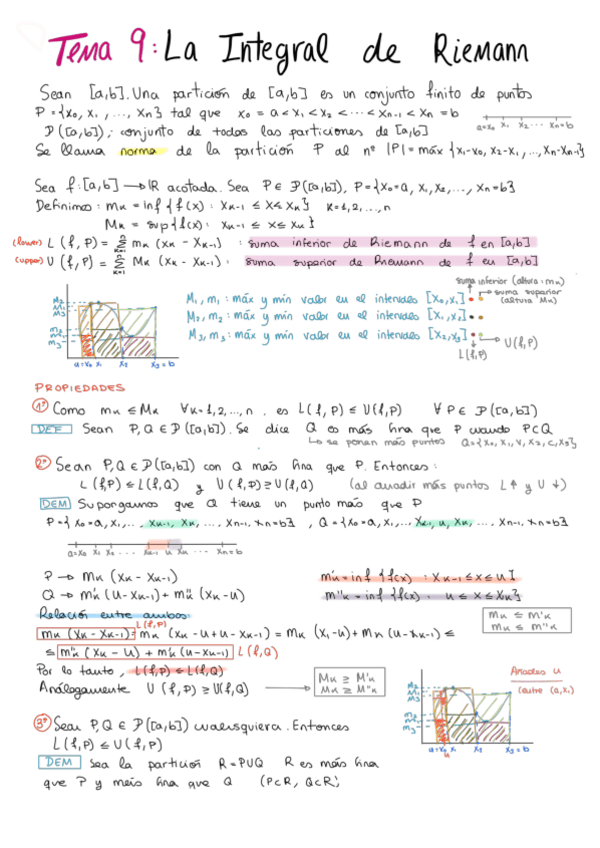 Tema 9: La Integral de Riemann
Sean [a,b]. Una partición de [a,b] es un conjunto finito de puntos
P = {x₀, x₁, ..., xₙ} tal que x₀ = a < x₁ < x₂ < ... < xₙ₋₁ < xₙ = b
a=x₀ x₁ x₂ ... xₙ=b
P([a,b]); conjunto de todas las particiones de [a,b]
Se llama norma de la partición P al nº |P| = máx {x₁-x₀, x₂-x₁, ..., xₙ-xₙ₋₁}
Sea f: [a,b] → ℝ acotada. Sea P ∈ P([a,b]), P = {x₀=a, x₁, x₂, ..., xₙ=b}
Definimos: mₖ = inf {f(x): xₖ₋₁ ≤ x ≤ xₖ} k=1,2,...,n
Mₖ = sup {f(x): xₖ₋₁ ≤ x ≤ xₖ}
(lower) L(f,P) = Σ mₖ (xₖ - xₖ₋₁) : suma inferior de Riemann de f en [a,b]
(upper) U(f,P) = Σ Mₖ (xₖ - xₖ₋₁) : suma superior de Riemann de f en [a,b]
suma inferior (altura: mₖ)
suma superior (altura Mₖ)
M₁, m₁: máx y mín valor en el intervalo [x₀,x₁]
M₂, m₂: máx y mín valor en el intervalo [x₁,x₂]
M₃, m₃: máx y mín valor en el intervalo [x₂,x₃]
U(f,P)
L(f,P)
a=x₀ x₁ x₂ x₃=b
PROPIEDADES
1º Como mₖ ≤ Mₖ ∀k=1,2,...,n, es L(f,P) ≤ U(f,P) ∀P ∈ P([a,b])
DEF Sean P,Q ∈ P([a,b]). Se dice Q es más fina que P cuando P⊂Q
↳ se ponen más puntos Q={x₀, x₁, v, x₂, c, x₃}
2º Sean P,Q ∈ P([a,b]) con Q más fina que P. Entonces:
L(f,P) ≤ L(f,Q) y U(f,P) ≥ U(f,Q) (al añadir más puntos L↑ y U↓)
DEM Supongamos que Q tiene un punto más que P
P = {x₀=a, x₁, ... xₖ₋₁, xₖ, ..., xₙ₋₁, xₙ=b}, Q = {x₀=a, x₁, ... xₖ₋₁, u, xₖ, ..., xₙ₋₁, xₙ=b}
a=x₀ x₁ x₂ ... xₖ₋₁ u xₖ ... xₙ=b
P → mₖ (xₖ - xₖ₋₁)
m'ₖ = inf {f(x): xₖ₋₁ ≤ x ≤ u}
Q → m'ₖ (u - xₖ₋₁) + m''ₖ (xₖ - u)
m''ₖ = inf {f(x): u ≤ x ≤ xₖ}
Relación entre ambos
mₖ ≤ m'ₖ
mₖ ≤ m''ₖ
L(f,P)
mₖ (xₖ - xₖ₋₁) = mₖ (xₖ - u + u - xₖ₋₁) = mₖ (xₖ - u) + mₖ (u - xₖ₋₁) ≤
≤ m''ₖ (xₖ - u) + m'ₖ (u - xₖ₋₁) L(f,Q)
Por lo tanto, L(f,P) ≤ L(f,Q)
Análogamente U(f,P) ≥ U(f,Q)
Mₖ ≥ M'ₖ
Mₖ ≥ M''ₖ
Añades u
(entre (a,x₁)
a=x₀ x₁ x₂ x₃=b
u
3º Sean P,Q ∈ P([a,b]) cualesquiera. Entonces
L(f,P) ≤ U(f,P)
DEM Sea la partición R = P∪Q R es más fina
que P y más fina que Q (P⊂R, Q⊂R)